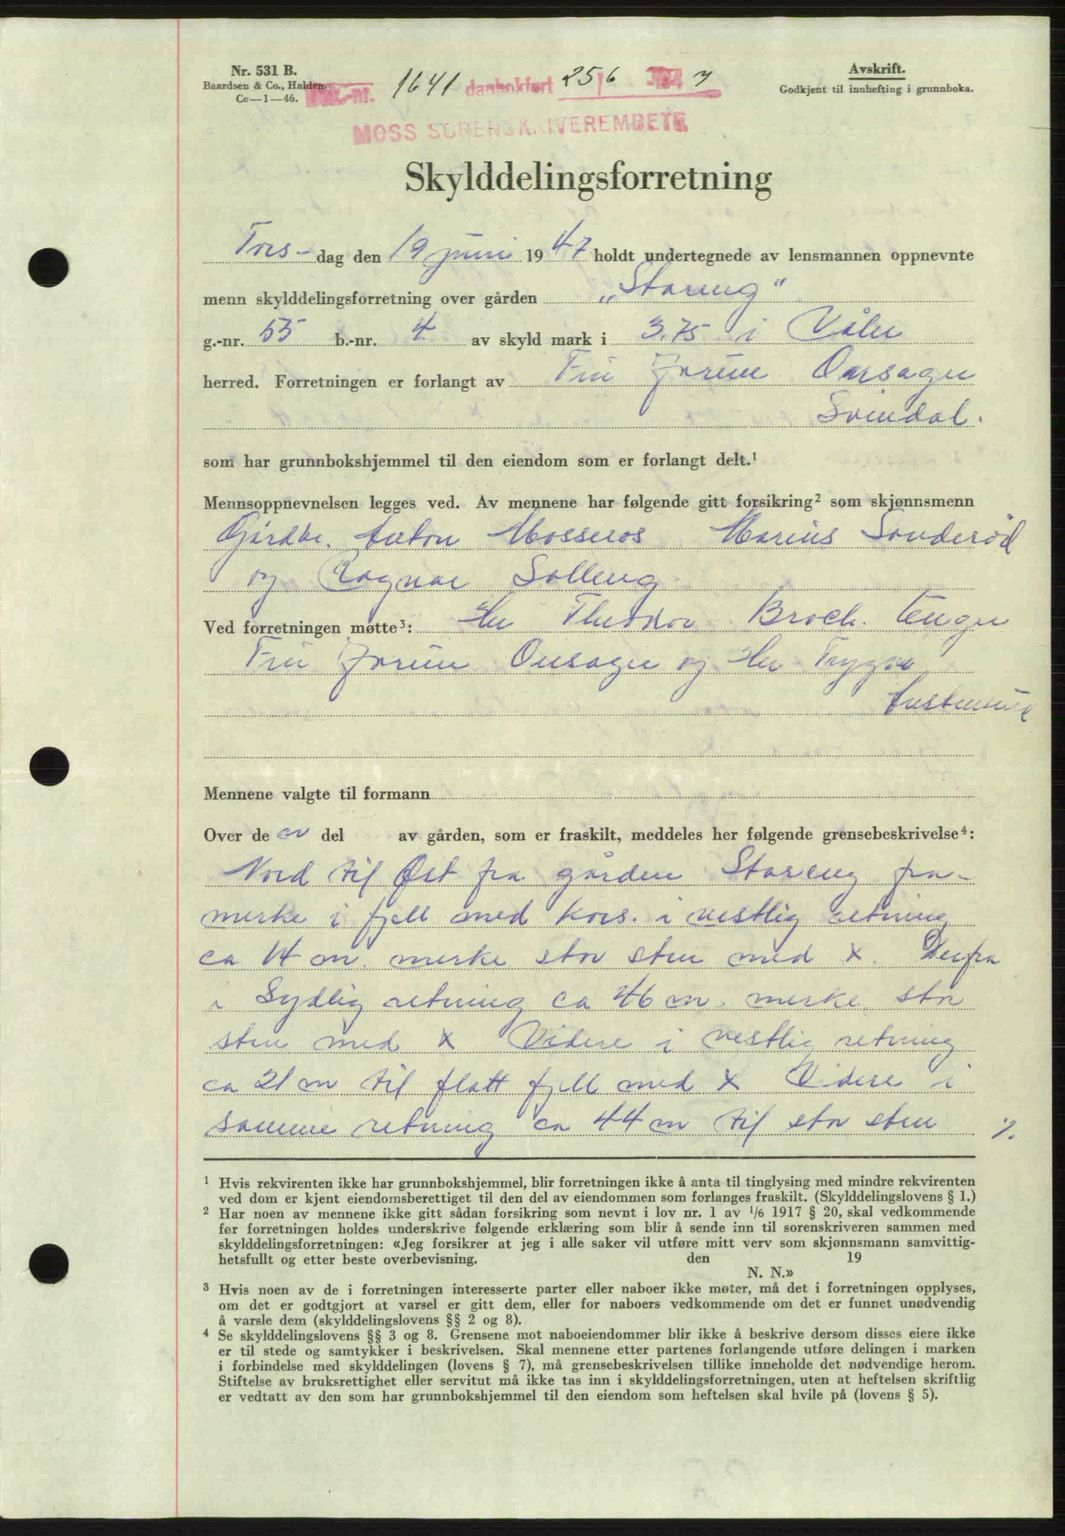 Nr. 531 B.
Baardsen & Co., Halden.
Cc—1—46.
Dok.-nr. 1641 dagbokført 25/6 1947
MOSS SORENSKRIVEREMBETE
Avskrift.
Godkjent til innhefting i grunnboka.
Skylddelingsforretning
Tors- dag den 19 juni 1947 holdt undertegnede av lensmannen oppnevnte
menn skylddelingsforretning over gården „Stareng“
g.-nr. 55 b.-nr. 4. av skyld mark i 3.75 i Våler
herred. Forretningen er forlangt av Fru Jorun Onsager
Svindal.
som har grunnbokshjemmel til den eiendom som er forlangt delt.¹
Mennsoppnevnelsen legges ved. Av mennene har følgende gitt forsikring² som skjønnsmenn
Gårdbr. Anton Mosseros Marius Sonderød
og Ragnar Solleng
Ved forretningen møtte³: Her Theodor Broch. Enger
Fru Jorun Onsager og Her Trygve
Mennene valgte til formann
Over de en del av gården, som er fraskilt, meddeles her følgende grensebeskrivelse⁴:
Nord til Øst fra gården Stareng fra-
merke i fjell med kors. i vestlig retning
ca 14 m. merke stor sten med x. Derfra
i Sydlig retning ca 46 m. merke, stor
sten med x Videre i vestlig retning
ca 21 m til flatt fjell med x Videre i
samme retning ca 44 m til stor sten ./.
¹ Hvis rekvirenten ikke har grunnbokshjemmel, blir forretningen ikke å anta til tinglysing med mindre rekvirenten
ved dom er kjent eiendomsberettiget til den del av eiendommen som forlanges fraskilt. (Skylddelingslovens § 1.)
² Har noen av mennene ikke gitt sådan forsikring som nevnt i lov nr. 1 av ¹/6 1917 § 20, skal vedkommende
før forretningen holdes underskrive følgende erklæring som blir å sende inn til sorenskriveren sammen med
skylddelingsforretningen: «Jeg forsikrer at jeg i alle saker vil utføre mitt verv som skjønnsmann samvittig-
hetsfullt og etter beste overbevisning. den 19
N. N.»
³ Hvis noen av de i forretningen interesserte parter eller naboer ikke møter, må det i forretningen opplyses,
om det er godtgjort at varsel er gitt dem, eller for naboers vedkommende om det er funnet unødvendig
å varsle dem (skylddelingslovens §§ 2 og 8).
⁴ Se skylddelingslovens §§ 3 og 8. Grensene mot naboeiendommer blir ikke å beskrive dersom disses eiere ikke
er til stede og samtykker i beskrivelsen. Skal mennene etter partenes forlangende utføre delingen i marken
i forbindelse med skylddelingen (lovens § 7), må grensebeskrivelsen tillike inneholde det nødvendige herom.
Stiftelse av bruksrettighet eller servitut må ikke tas inn i skylddelingsforretningen, uten at heftelsen skriftlig
er vedtatt av den som har grunnbokshjemmel til den eiendom som heftelsen skal hvile på (lovens § 5).